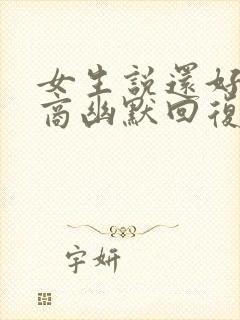 女生説還好
商幽默回復
宇妍